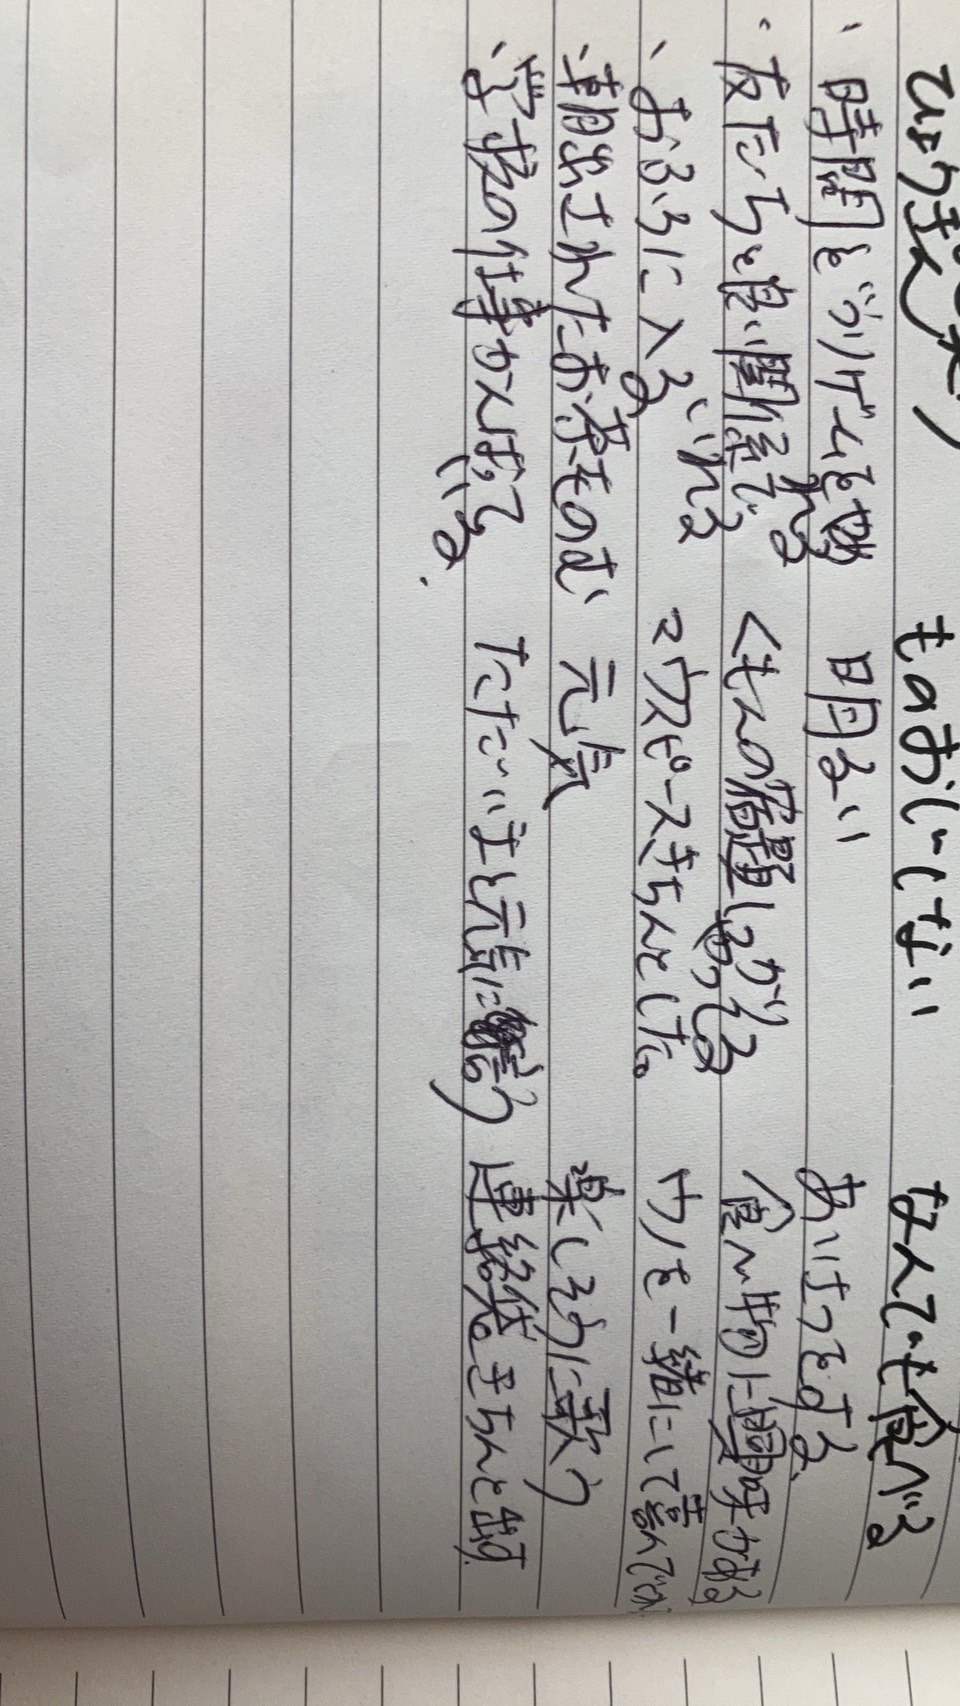 ものおじしない なんでも食べる
時間をくぎりゲームをやめれる 明るい あいさつをする
友だちと良い関係でいれる くもんの宿題しあがりやってる 食べ物に興味がある
おふろに入る マウスピースきちんとした 一緒にして
朝出されたお茶ものむ 元気 楽しそうに歌う
学校の仕事がんばっている。 ただいまと元気に言う 連絡袋きちんと出す